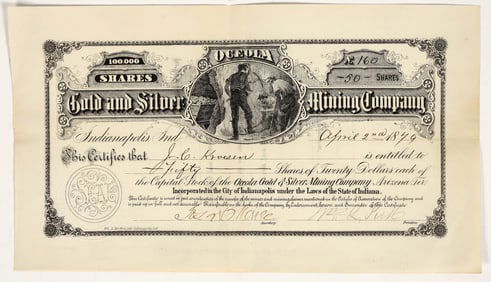 100.000
SHARES
OCEOLA
£ 160
-50- SHARES
Gold and Silver Mining Company
Indianapolis Ind. April 2nd 1879
This Certifies that J. C. is entitled to
Fifty Shares of Twenty Dollars each of
the Capital Stock of the Oceola Gold & Silver Mining Company Arizona Ter.
Incorporated in the City of Indianapolis under the Laws of the State of Indiana.
This Certificate is issued in part consideration of the transfer of the mines and mining claims mentioned in the Articles of Association of the Company and
is paid up in full and not assessable. Transferable on the books of the Company by Endorsement hereon and Surrender of this Certificate
Secretary President